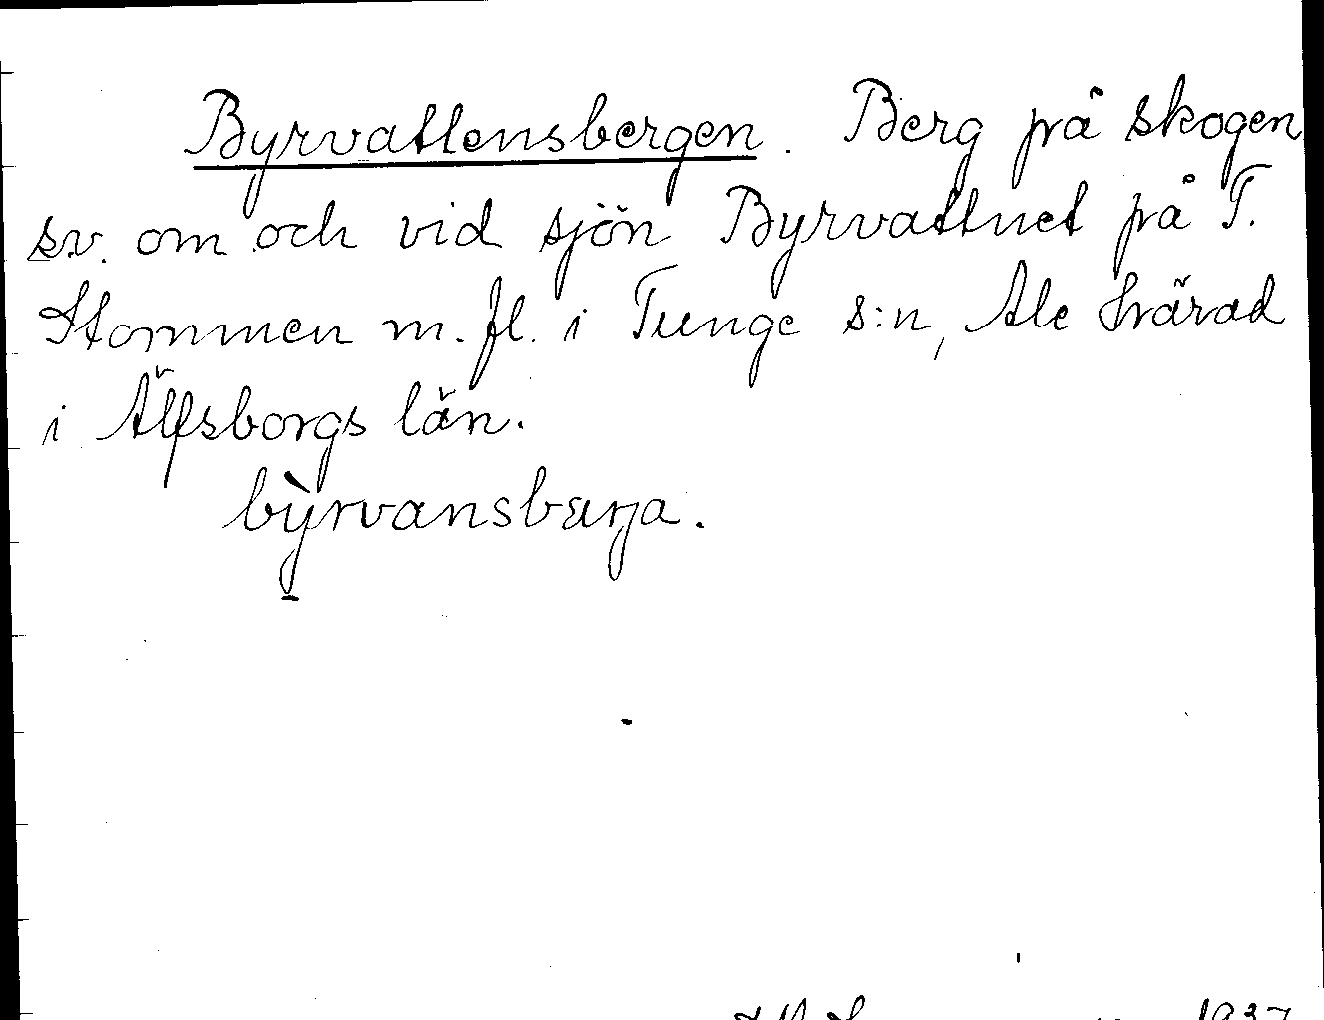 Byrvattensbergen. Berg på skogen
sv. om och vid sjön Byrvattnet på T.
Stommen m.fl. i Tunge s:n, Ale härad
i Älfsborgs län.
bỳrvansbærja.
1937